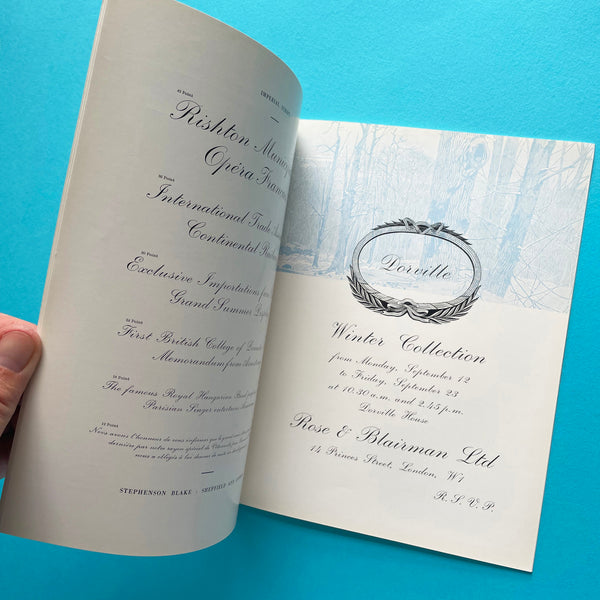 IMPERIAL
42 Point
Rishton
Opéra
36 Point
International Trade
Continental
30 Point
Exclusive Importations
Grand Summer
24 Point
First British College of
Memorandum from
18 Point
The famous Royal Hungarian Band
Parisian Singer
12 Point
Nous avons l'honneur de vous informer que le
dernière par notre rayon spécial de
nous a obligés à
STEPHENSON BLAKE : SHEFFIELD AND
Dorville
Winter Collection
from Monday, September 12
to Friday, September 23
at 10.30 a.m. and 2.45 p.m.
Dorville House
Rose & Blairman Ltd
14 Princes Street, London, W1
R.S.V.P.